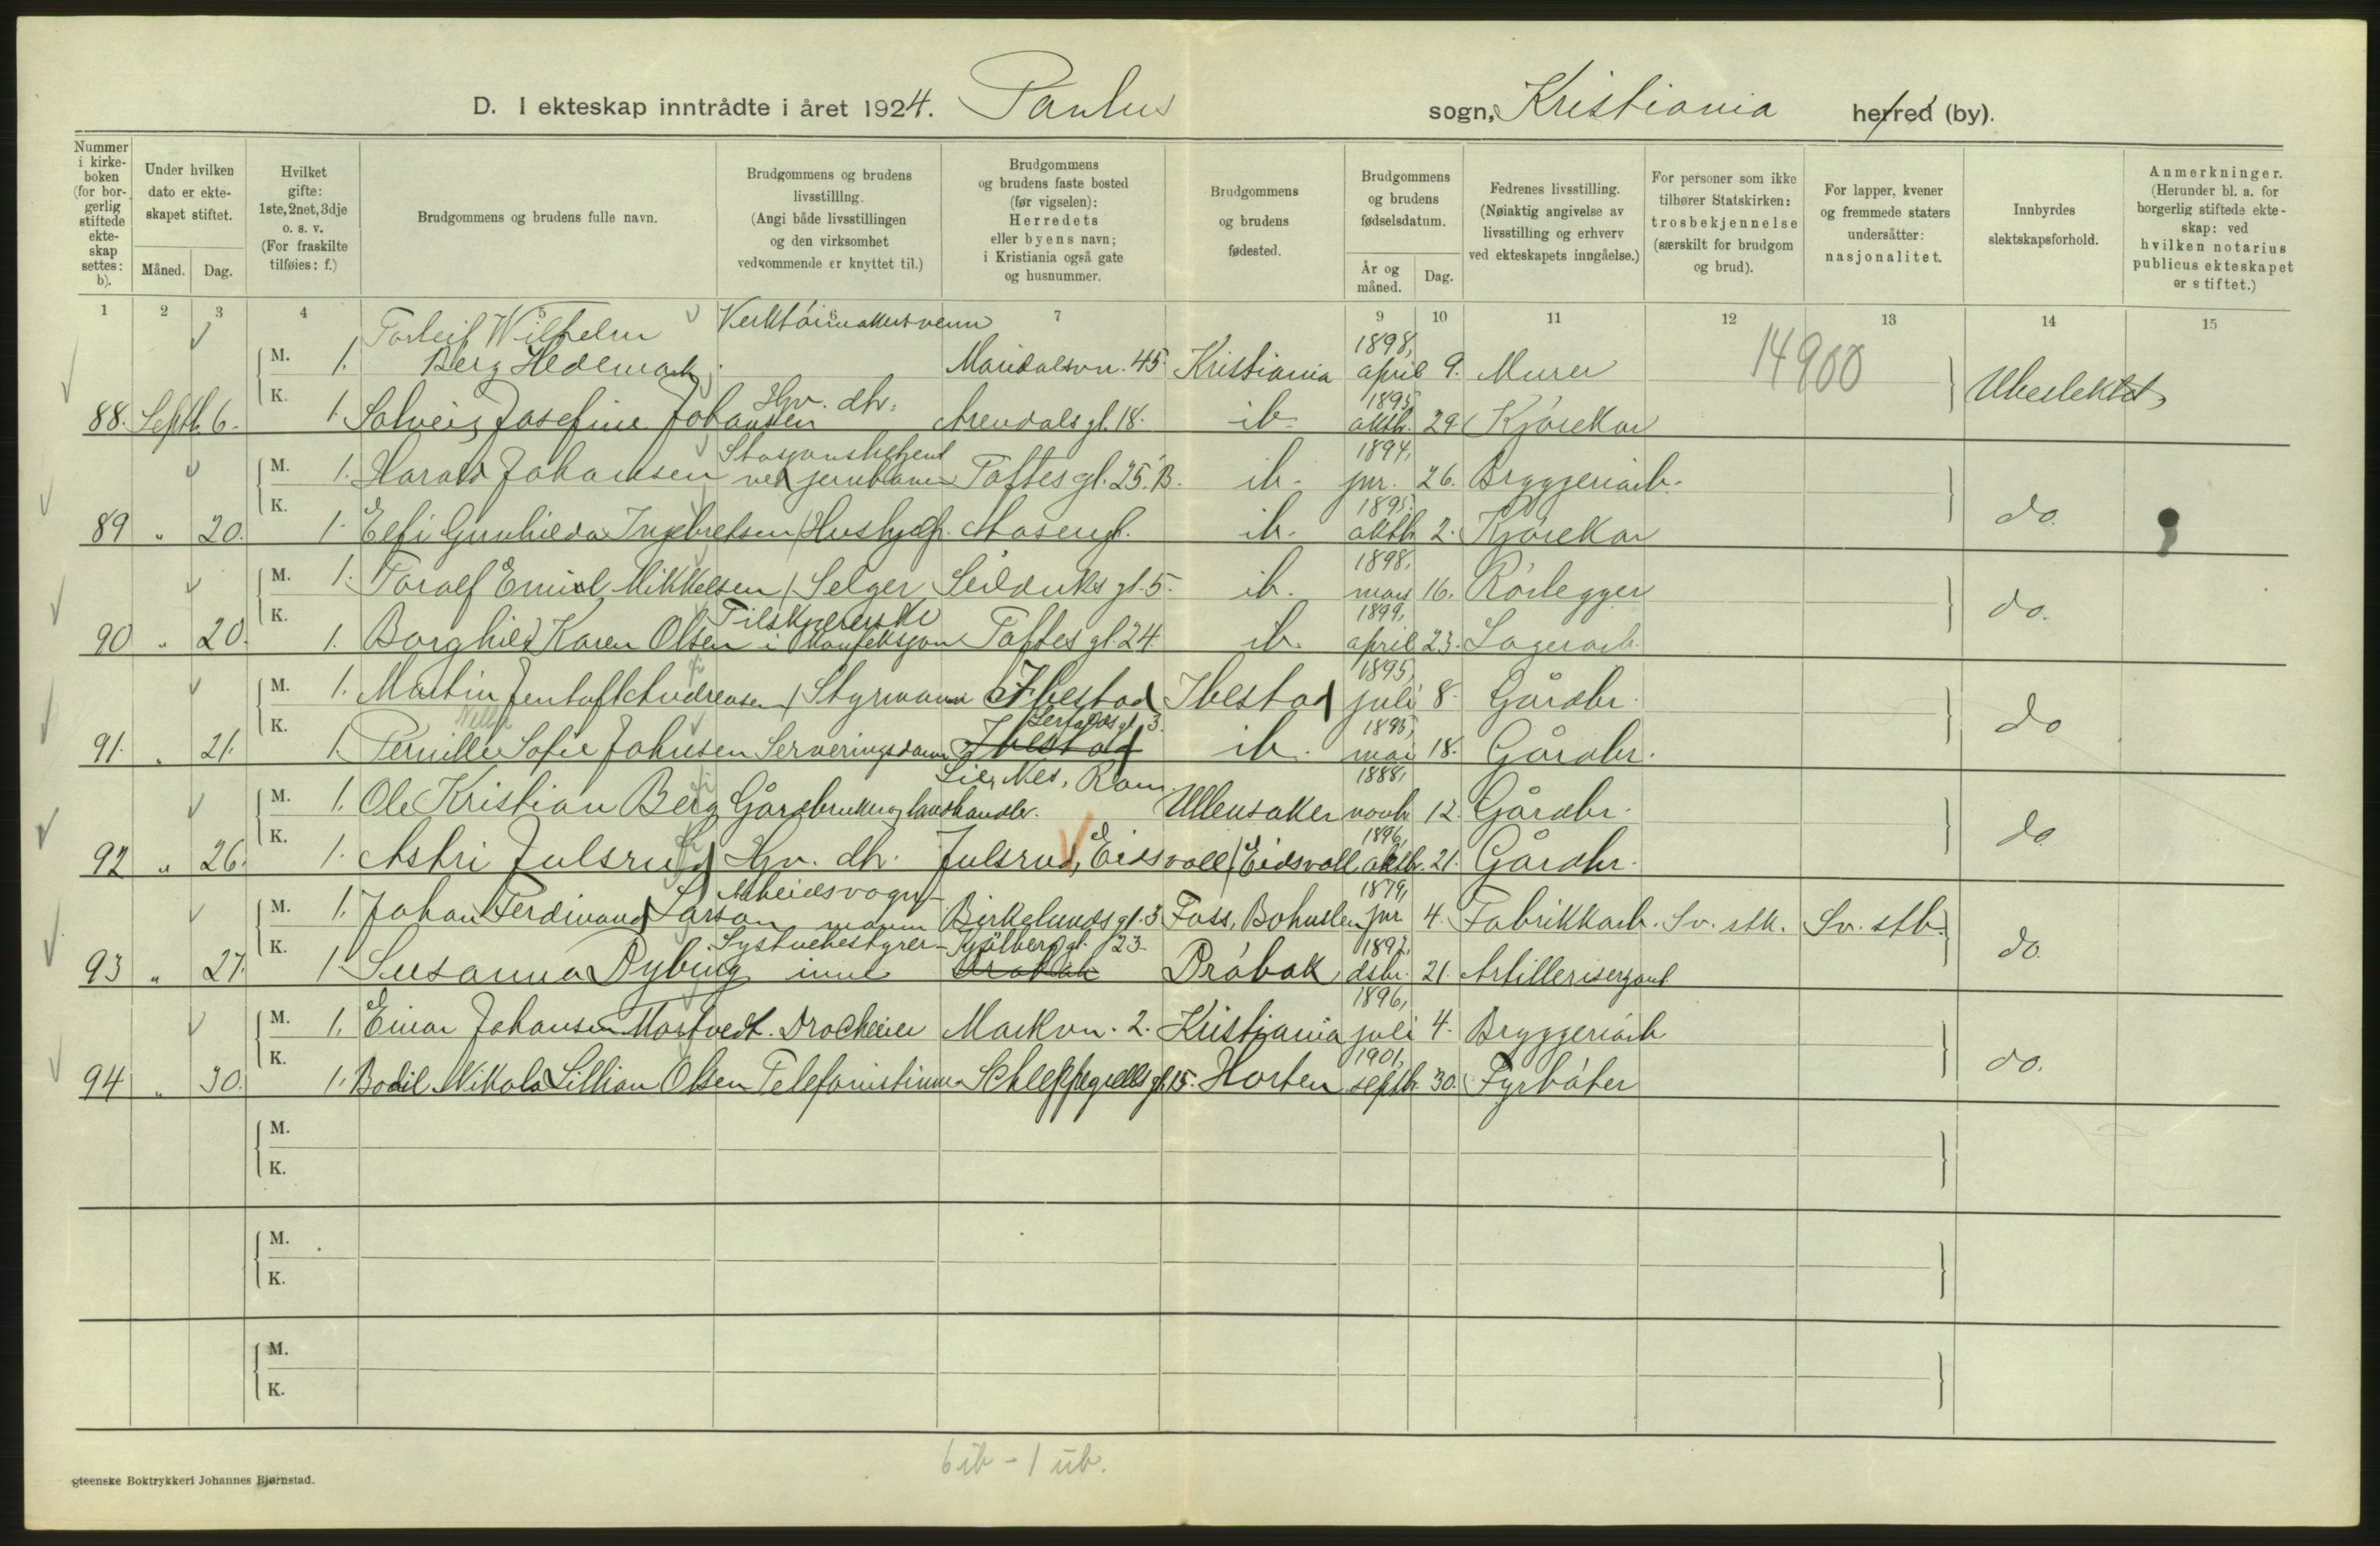 D. I ekteskap inntrådte i året 1924. Paulus sogn, Kristiania herred (by).
Nummer i kirke-boken (for bor-gerlig stiftede ekte-skap settes: b).
Under hvilken dato er ekte-skapet stiftet.
Måned. Dag.
Hvilket gifte: 1ste, 2net, 3dje o. s. v. (For fraskilte tilføies: f.)
Brudgommens og brudens fulle navn.
Brudgommens og brudens livsstilling. (Angi både livsstillingen og den virksomhet vedkommende er knyttet til.)
Brudgommens og brudens faste bosted (før vigselen): Herredets eller byens navn; i Kristiania også gate og husnummer.
Brudgommens og brudens fødested.
Brudgommens og brudens fødselsdatum.
År og måned. Dag.
Fedrenes livsstilling. (Nøiaktig angivelse av livsstilling og erhverv ved ekteskapets inngåelse.)
For personer som ikke tilhører Statskirken: trosbekjennelse (særskilt for brudgom og brud).
For lapper, kvener og fremmede staters undersåtter: nasjonalitet.
Innbyrdes slektskapsforhold.
Anmerkninger. (Herunder bl. a. for borgerlig stiftede ekte-skap: ved hvilken notarius publicus ekteskapet er stiftet.)
1 2 3 4 7 9 10 11 12 13 14 15
Torleif Wilhelm Verktøimakersvenn 1898, 14900
M. 1. Berg Hedemark Maridalsvn. 45. Kristiania april 9. Murer Ubeslektet,
K. Hv. dtr. 1895,
88. Septb. 6. 1. Solveig Josefine Johansen Arendalsgt. 18. ib. oktb. 29. Kjørekar
M. 1. Harald Johansen ved jernbanen Toftesgt. 25. B. ib. 1894, jnr. 26. Bryggeriarb.
K. 1895,
89 " 20. 1. Elfi Gunhilda Ingebretsen Hushjelp. Mosengt. ib. oktb. 2. Kjørekar do.
M. 1. Toralf Emil Mikkelsen Selger Seilduksgt. 5. ib. 1898, mars 16. Rørlegger
K. Tilskjærerske 1899,
90 " 20. 1. Borghild Karen Olsen i konfeksjon Toftesgt. 24. ib. april 23. Lagerarb. do.
M. 1. Martin Jentoft Andreasen Styrmann Ibestad Ibestad 1895, juli 8. Gårdbr.
K. 3. 1895,
91. " 21. 1. Pernille Sofie Johnsen Serveringsdame Ibestad ib. mai 18. Gårdbr. do
Lier, Nes, Rom. 1888,
M. 1. Ole Kristian Berg Gårdbruker og landhandler. Ullensaker novb. 12. Gårdbr.
K. 1896,
92 " 26. 1. Astri Julsrud Hv. dtr. Julsrud, Eidsvoll Eidsvoll oktb. 21. Gårdbr. do
Arbeidsvogn- 1879,
M. 1. Johan Ferdinand Larson mann Birkelundsgt. 3 Foss, Bohuslen jnr. 4. Fabrikkarb. Sv. stk. Sv. stb.
K. Systuebestyrer- Kjølberggt. 23. 1892,
93 " 27. 1. Susanna Dybing inne Drøbak Drøbak dsbr. 21. Artillerisersjant do.
1896,
M. 1. Einar Johansen Mostvedt. Drosjeeier Markvn. 2. Kristiania juli 4. Bryggeriarb.
K. 1901,
94 " 30. 1. Bodil Nikola Lillian Olsen Telefonistinne Schleppegrellsgt. 15. Horten septb. 30. Fyrbøter do.
M.
K.
M.
K.
M.
K.
6 ib - 1 ub.
gteenske Boktrykkeri Johannes Bjørnstad.